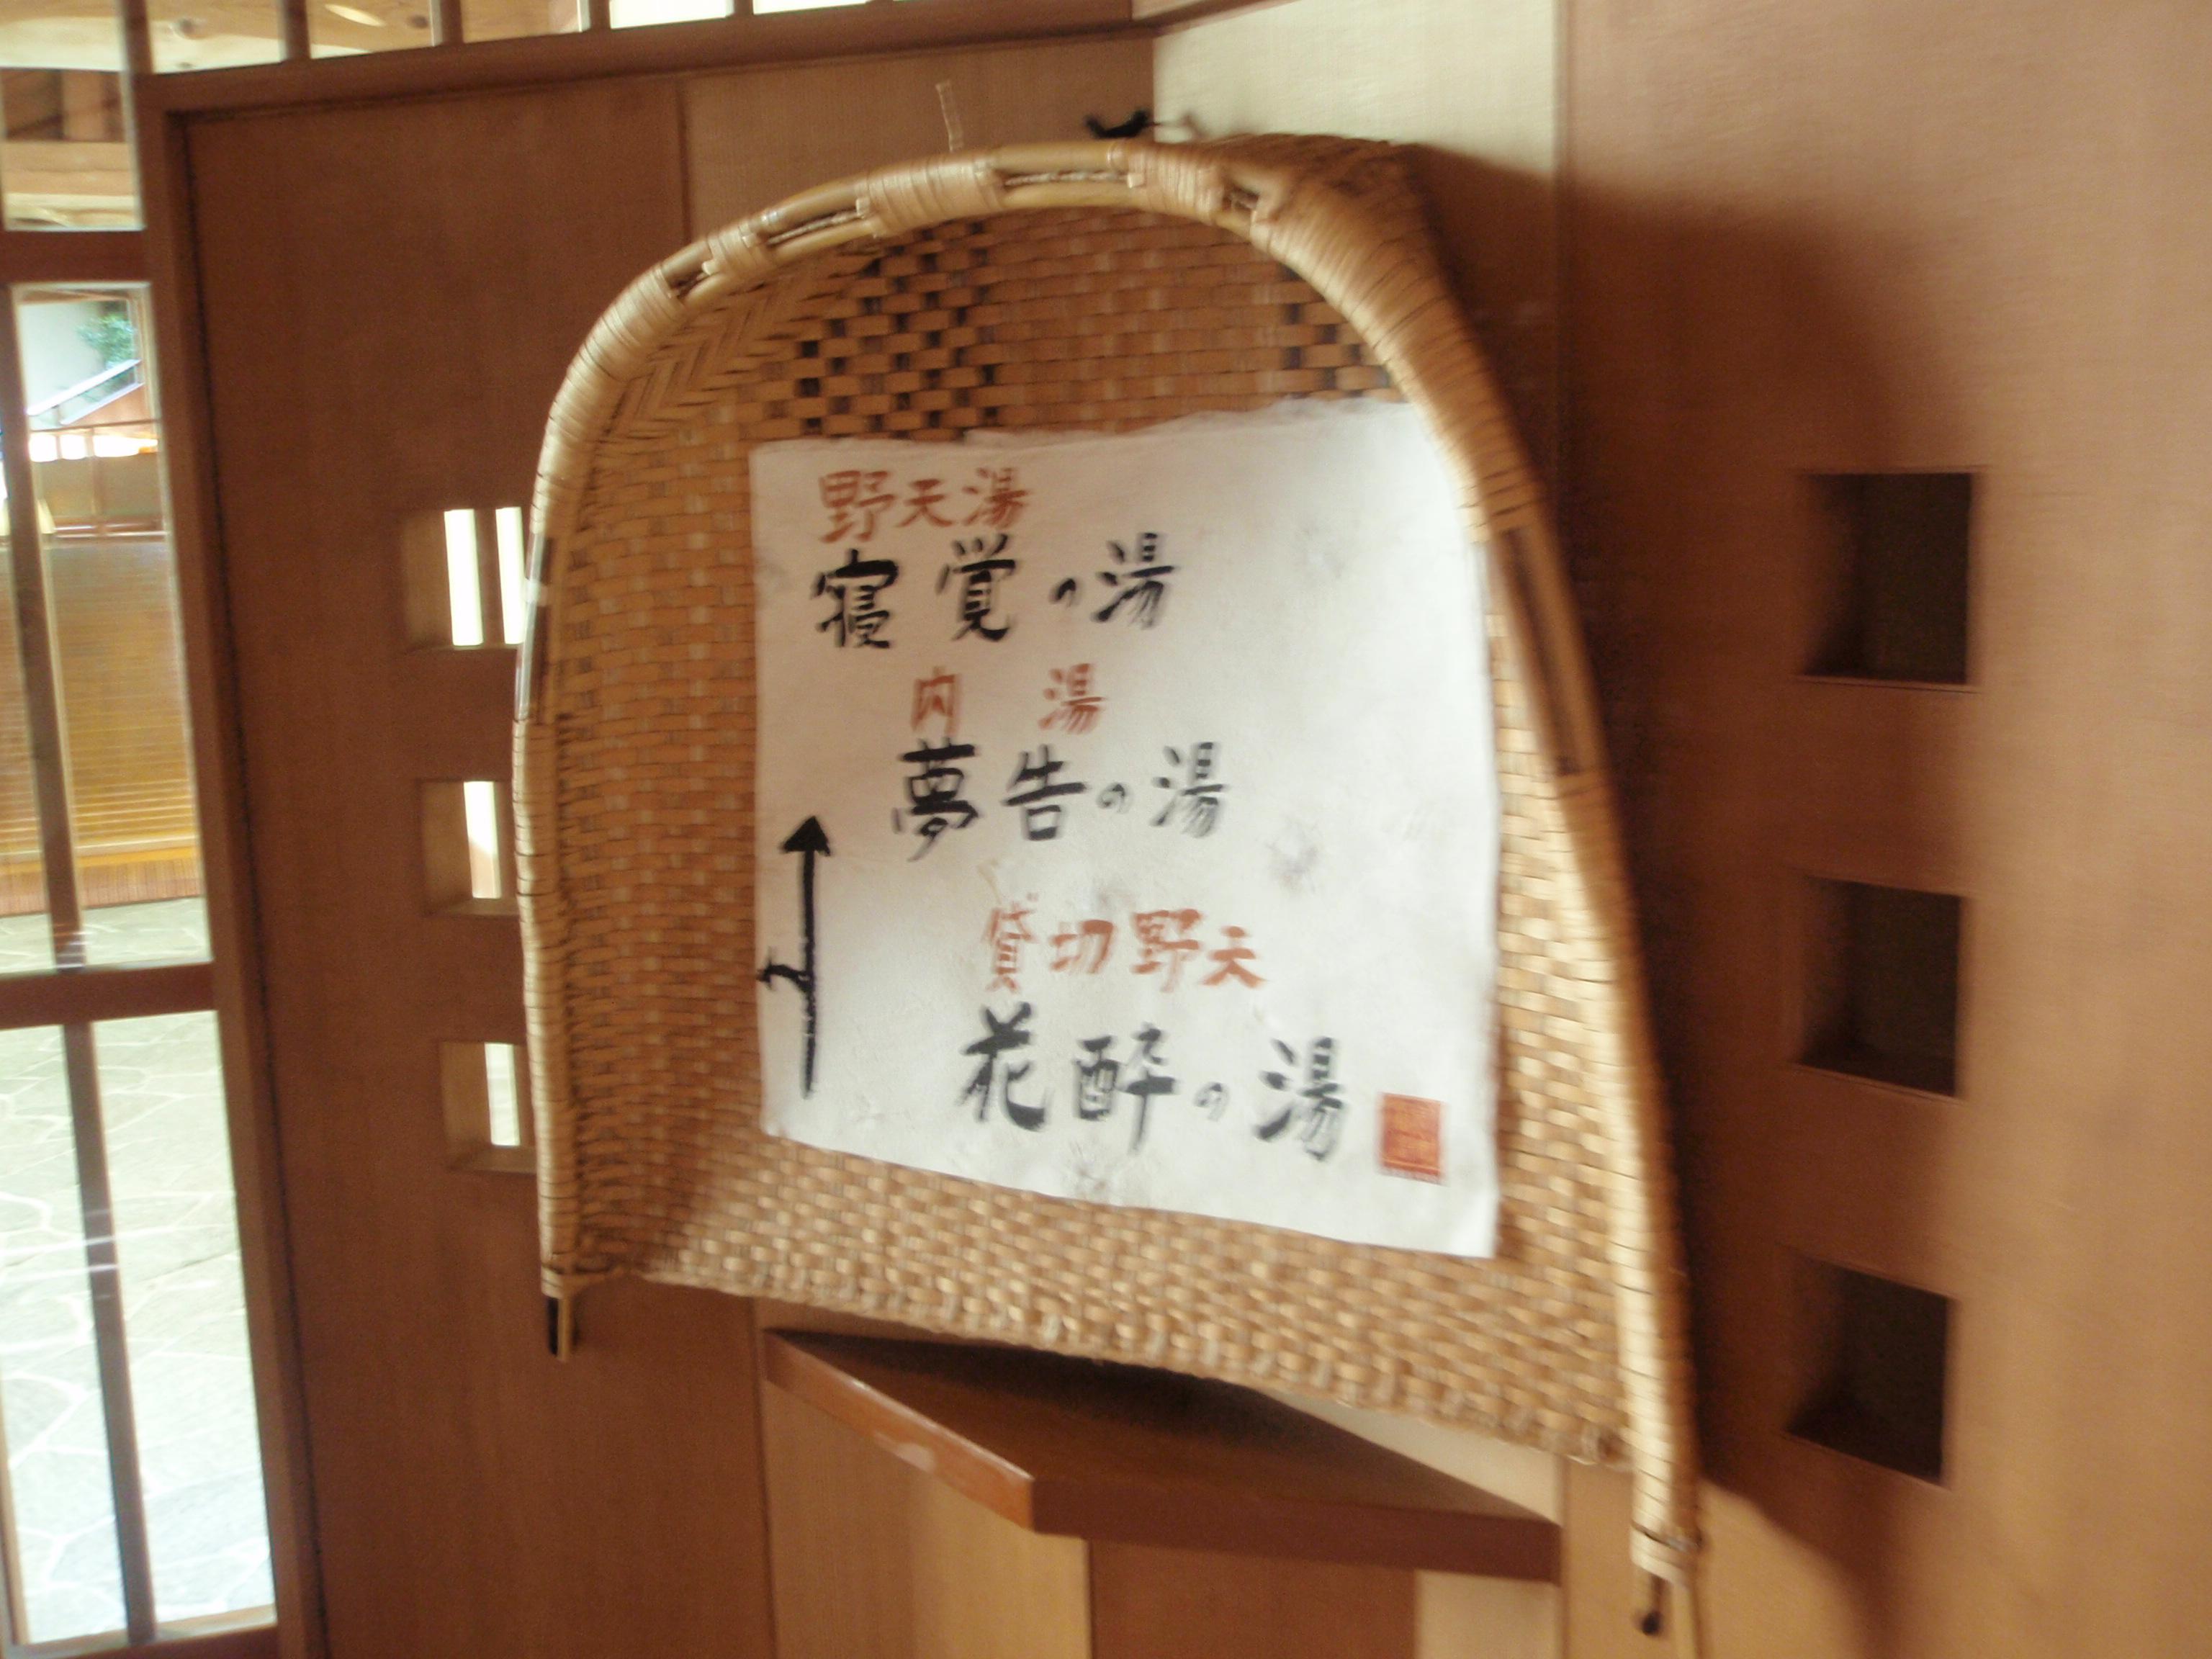 野天湯
寝覚の湯
内湯
夢告の湯
貸切野天
花酔の湯